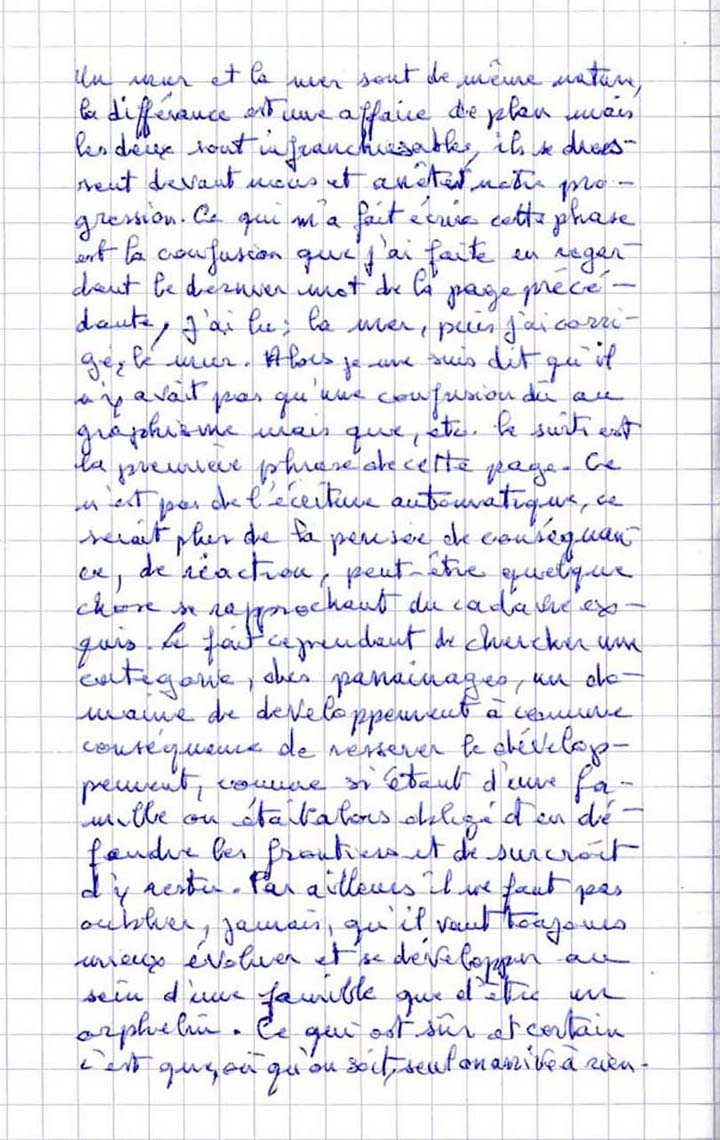 Un mur et la mer sont de même nature,
la différance est une affaire de plan mais
les deux sont infranchissable, ils se dres-
sent devant nous et arrêtent notre pro-
gression. Ce qui m'a fait écrire cette phase
est la confusion que j'ai faite en regar-
dant le dernier mot de la page précé-
dante, j'ai lu ; la mer, puis j'ai corri-
gé, le mur. Alors je me suis dit qu'il
n'y avait pas qu'une confusion dû au
graphisme mais que, etc. la suite est
la première phrase de cette page. Ce
n'est pas de l'écriture automatique, ce
serait plus de la pensée de conséquan-
ce, de réaction, peut-être quelque
chose se rapprochant du cadavre ex-
quis. Le fait cependant de chercher une
catégorie, des parrainages, un do-
maine de développement à comme
conséquence de resserer le dévelop-
pement, comme si étant d'une fa-
mille on était alors obligé d'en dé-
fendre les frontiers et de surcroît
d'y rester. Par ailleurs il ne faut pas
oublier, jamais, qu'il vaut toujours
mieux évoluer et se développer au
sein d'une famille que d'être un
orphelin. Ce qui est sûr et certain
c'est que, où qu'on soit, seul on arrive à rien.